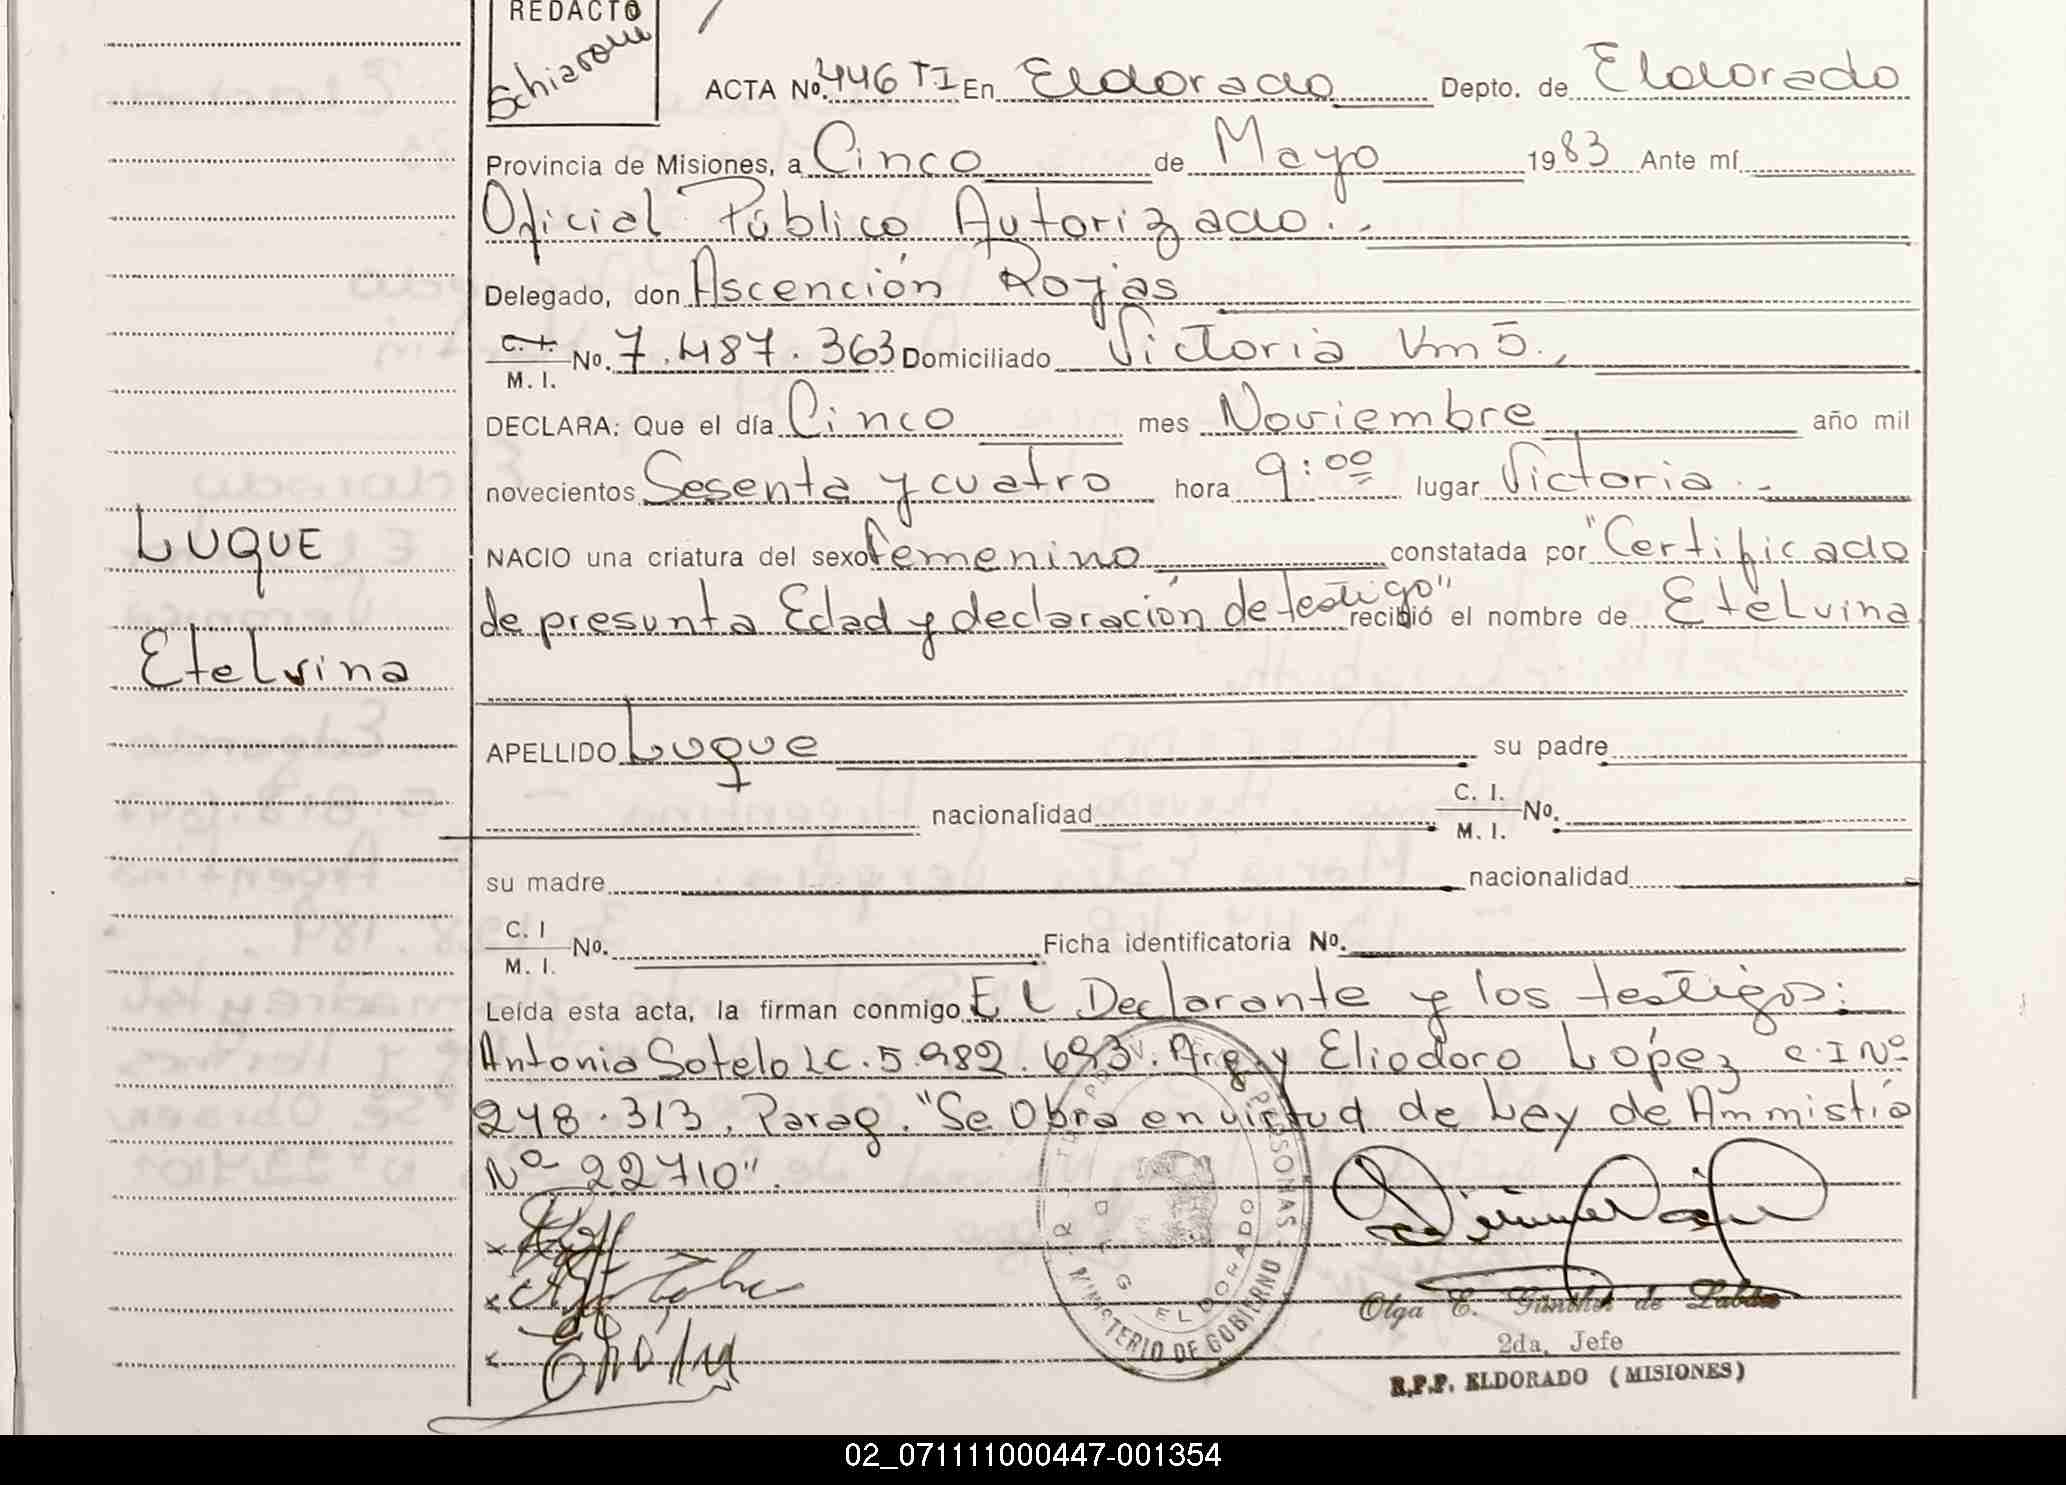 REDACTO
Schiaroni
ACTA No. 446 TI En Eldorado Depto. de Eldorado
Provincia de Misiones, a Cinco de Mayo 1983 Ante mí
Oficial Público Autorizado.-
Delegado, don Ascención Rojas
C. I. M. I. No. 7.487.363 Domiciliado Victoria Km 5.,
DECLARA: Que el día Cinco mes Noviembre año mil
novecientos Sesenta y cuatro hora 9:00 lugar Victoria.-
NACIO una criatura del sexo femenino constatada por "Certificado
de presunta Edad y declaración de testigo" recibió el nombre de Etelvina
LUQUE
Etelvina
APELLIDO Luque su padre
nacionalidad C. I. M. I. No.
su madre nacionalidad
C. I M. I. No. Ficha identificatoria No.
Leída esta acta, la firman conmigo El Declarante y los testigos:
Antonia Sotelo LC. 5.982.693. Arg. y Eliodoro López C.I Nº
248.313. Parag. "Se Obra en virtud de Ley de Ammistia
Nº 22710".
PERSONAS
MINISTERIO DE GOBIERNO
ELDORADO
Olga E. Günther de
2da, Jefe
R.P.P. ELDORADO (MISIONES)
02_071111000447-001354